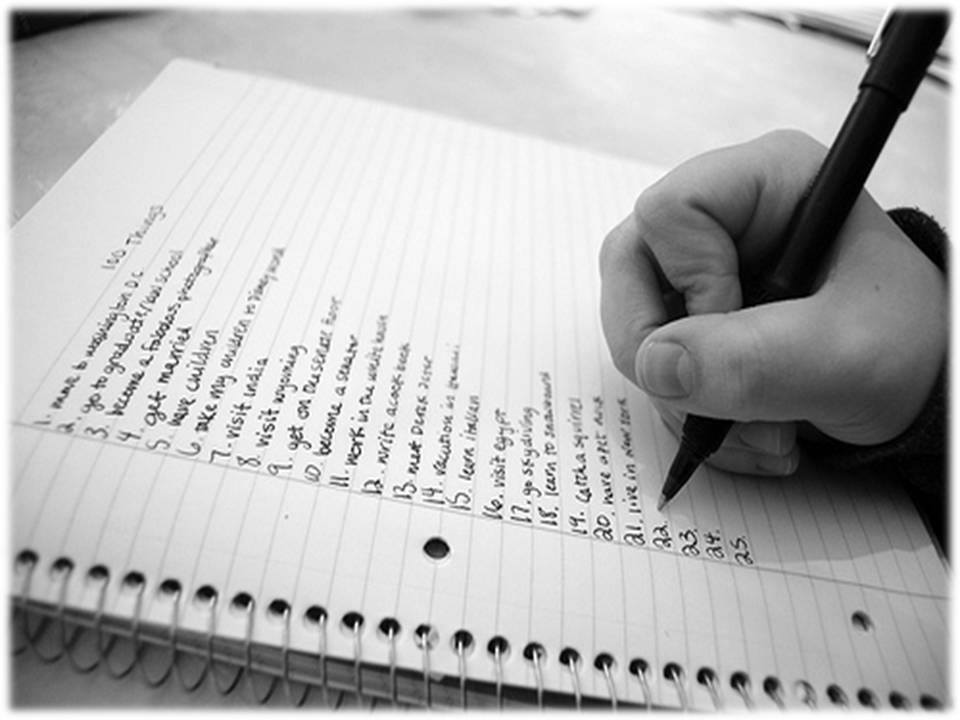 100 Things
1. move to washington D.C
2. go to graduate/law school
3. become a fabulous photographer
4. get married
5. have children
6. take my children to Disney world
7. visit India
8. visit wyoming
9. get on the senate floor
10. become a senator
11. work in the white house
12. write a cook book
13. meet Derek Jeter
14. vacation in
15. learn italian
16. visit egypt
17. go skydiving
18. learn to snowboard
19. catch a squirrel
20. have a pet
21. live in new york
22.
23.
24.
25.